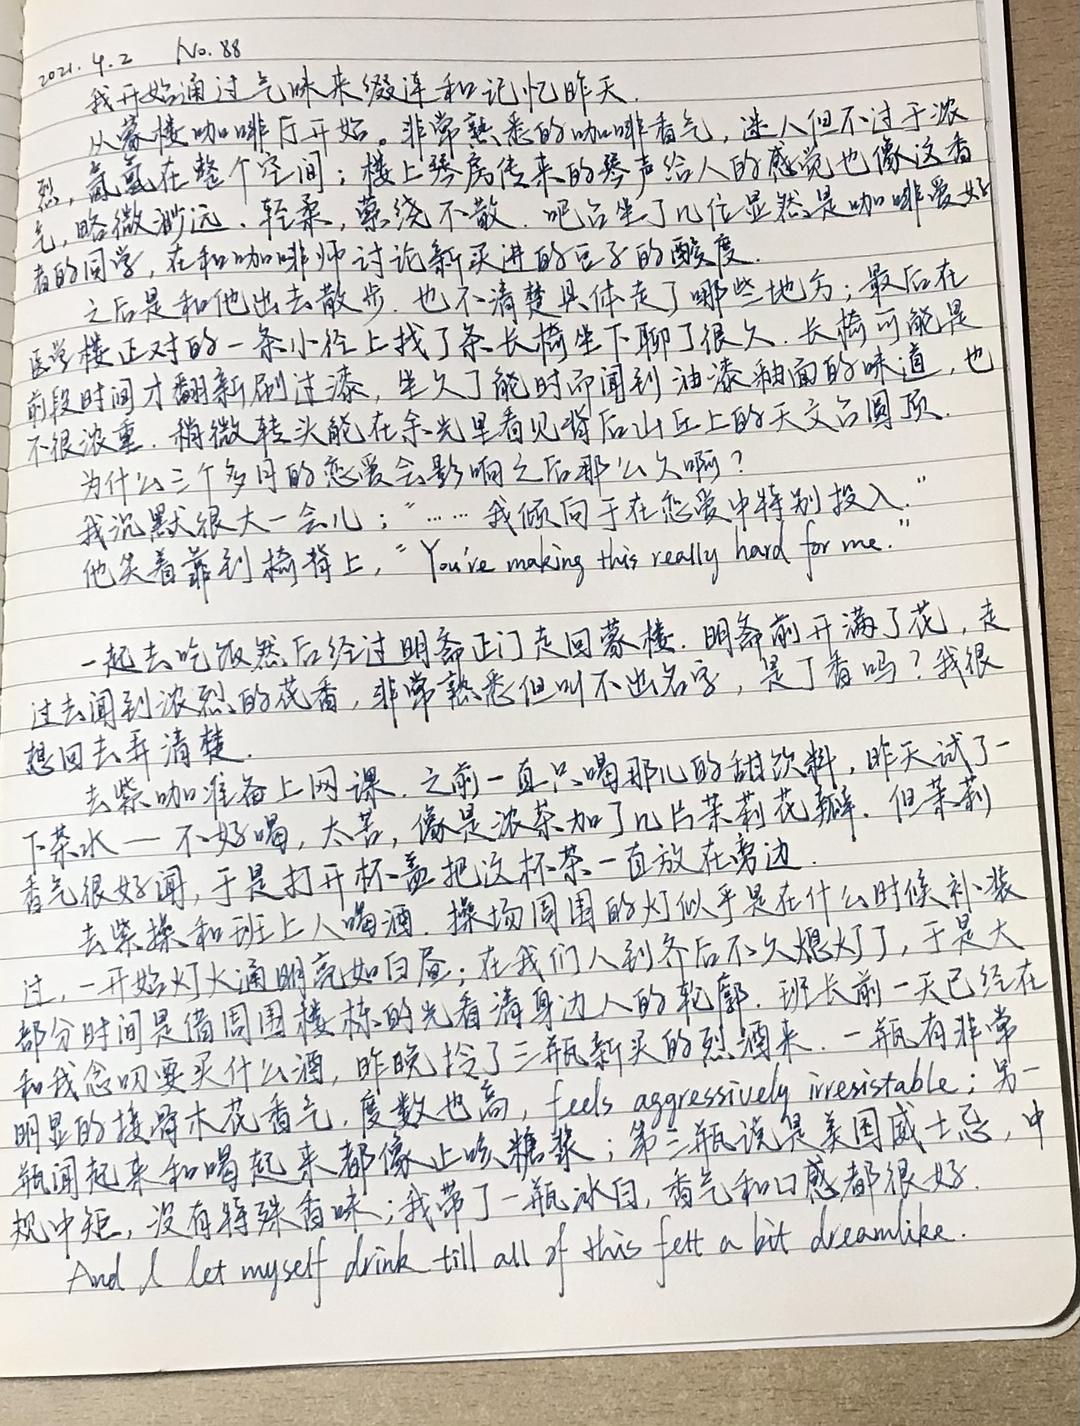 2021.4.2 No.88
我开始通过气味来缀连和记忆昨天.
从蒙楼咖啡厅开始。非常熟悉的咖啡香气，迷人但不过于浓
烈，氤氲在整个空间；楼上琴房传来的琴声给人的感觉也像这香
气，略微渺远、轻柔，萦绕不散. 吧台坐了几位显然是咖啡爱好
者的同学，在和咖啡师讨论新买进的豆子的酸度.
之后是和他出去散步. 也不清楚具体走了哪些地方；最后在
医学楼正对的一条小径上找了条长椅坐下聊了很久. 长椅可能是
前段时间才翻新刷过漆，坐久了能时而闻到油漆釉面的味道，也
不很浓重. 稍微转头能在余光里看见背后山丘上的天文台圆顶.
为什么三个多月的恋爱会影响之后那么久啊？
我沉默很大一会儿；“……我倾向于在恋爱中特别投入.”
他笑着靠到椅背上，“You're making this really hard for me.”
一起去吃饭然后经过明斋正门走回蒙楼. 明斋前开满了花，走
过去闻到浓烈的花香，非常熟悉但叫不出名字，是丁香吗？我很
想回去弄清楚.
去紫咖准备上网课. 之前一直只喝那儿的甜饮料，昨天试了一
下茶水— 不好喝，太苦，像是浓茶加了几片茉莉花瓣. 但茉莉
香气很好闻，于是打开杯盖把这杯茶一直放在旁边.
去紫操和班上人喝酒. 操场周围的灯似乎是在什么时候补装
过，一开始灯火通明亮如白昼；在我们人到齐后不久熄灯了，于是大
部分时间是借周围楼栋的光看清身边人的轮廓. 班长前一天已经在
和我念叨要买什么酒，昨晚拎了三瓶新买的烈酒来. 一瓶有非常
明显的接骨木花香气，度数也高，feels aggressively irresistable；另一
瓶闻起来和喝起来都像止咳糖浆；第三瓶说是美国威士忌，中
规中矩，没有特殊香味；我带了一瓶冰白，香气和口感都很好.
And I let myself drink till all of this felt a bit dreamlike.